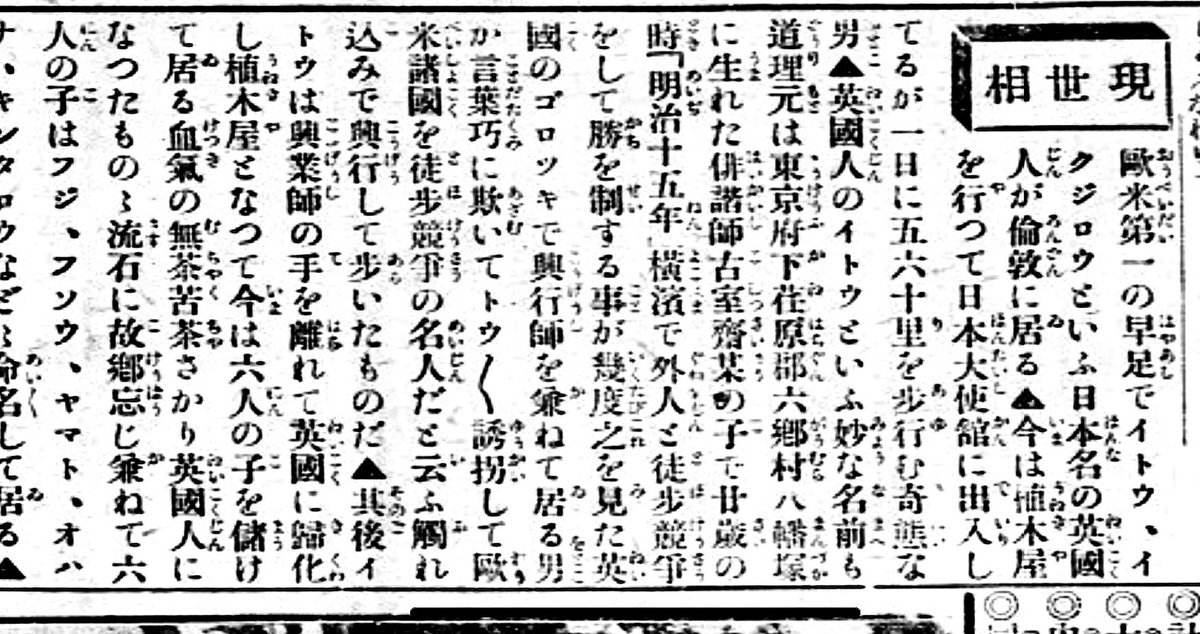 現世相
歐米第一の早足でイトウ、イ
クジロウといふ日本名の英國
人が倫敦に居る▲今は植木屋
を行つて日本大使館に出入し
てるが一日に五六十里を步行む奇態な
男▲英國人のイトウといふ妙な名前も
道理元は東京府下荏原郡六鄕村八幡塚
に生れた俳諧師古室齋某の子で廿歲の
時「明治十五年」橫濱で外人と徒步競爭
をして勝を制する事が幾度之を見た英
國のゴロツキで興行師を兼ねて居る男
が言葉巧に欺いてトウ〱誘拐して歐
米諸國を徒步競爭の名人だと云ふ觸れ
込みで興行して步いたものだ▲其後イ
トウは興業師の手を離れて英國に歸化
し植木屋となつて今は六人の子を儲け
て居る血氣の無茶苦茶さかり英國人に
なつたものゝ流石に故鄕忘じ兼ねて六
人の子はフジ、フソウ、ヤマト、オハ
ナ、キンタロウなどゝ命名して居る▲